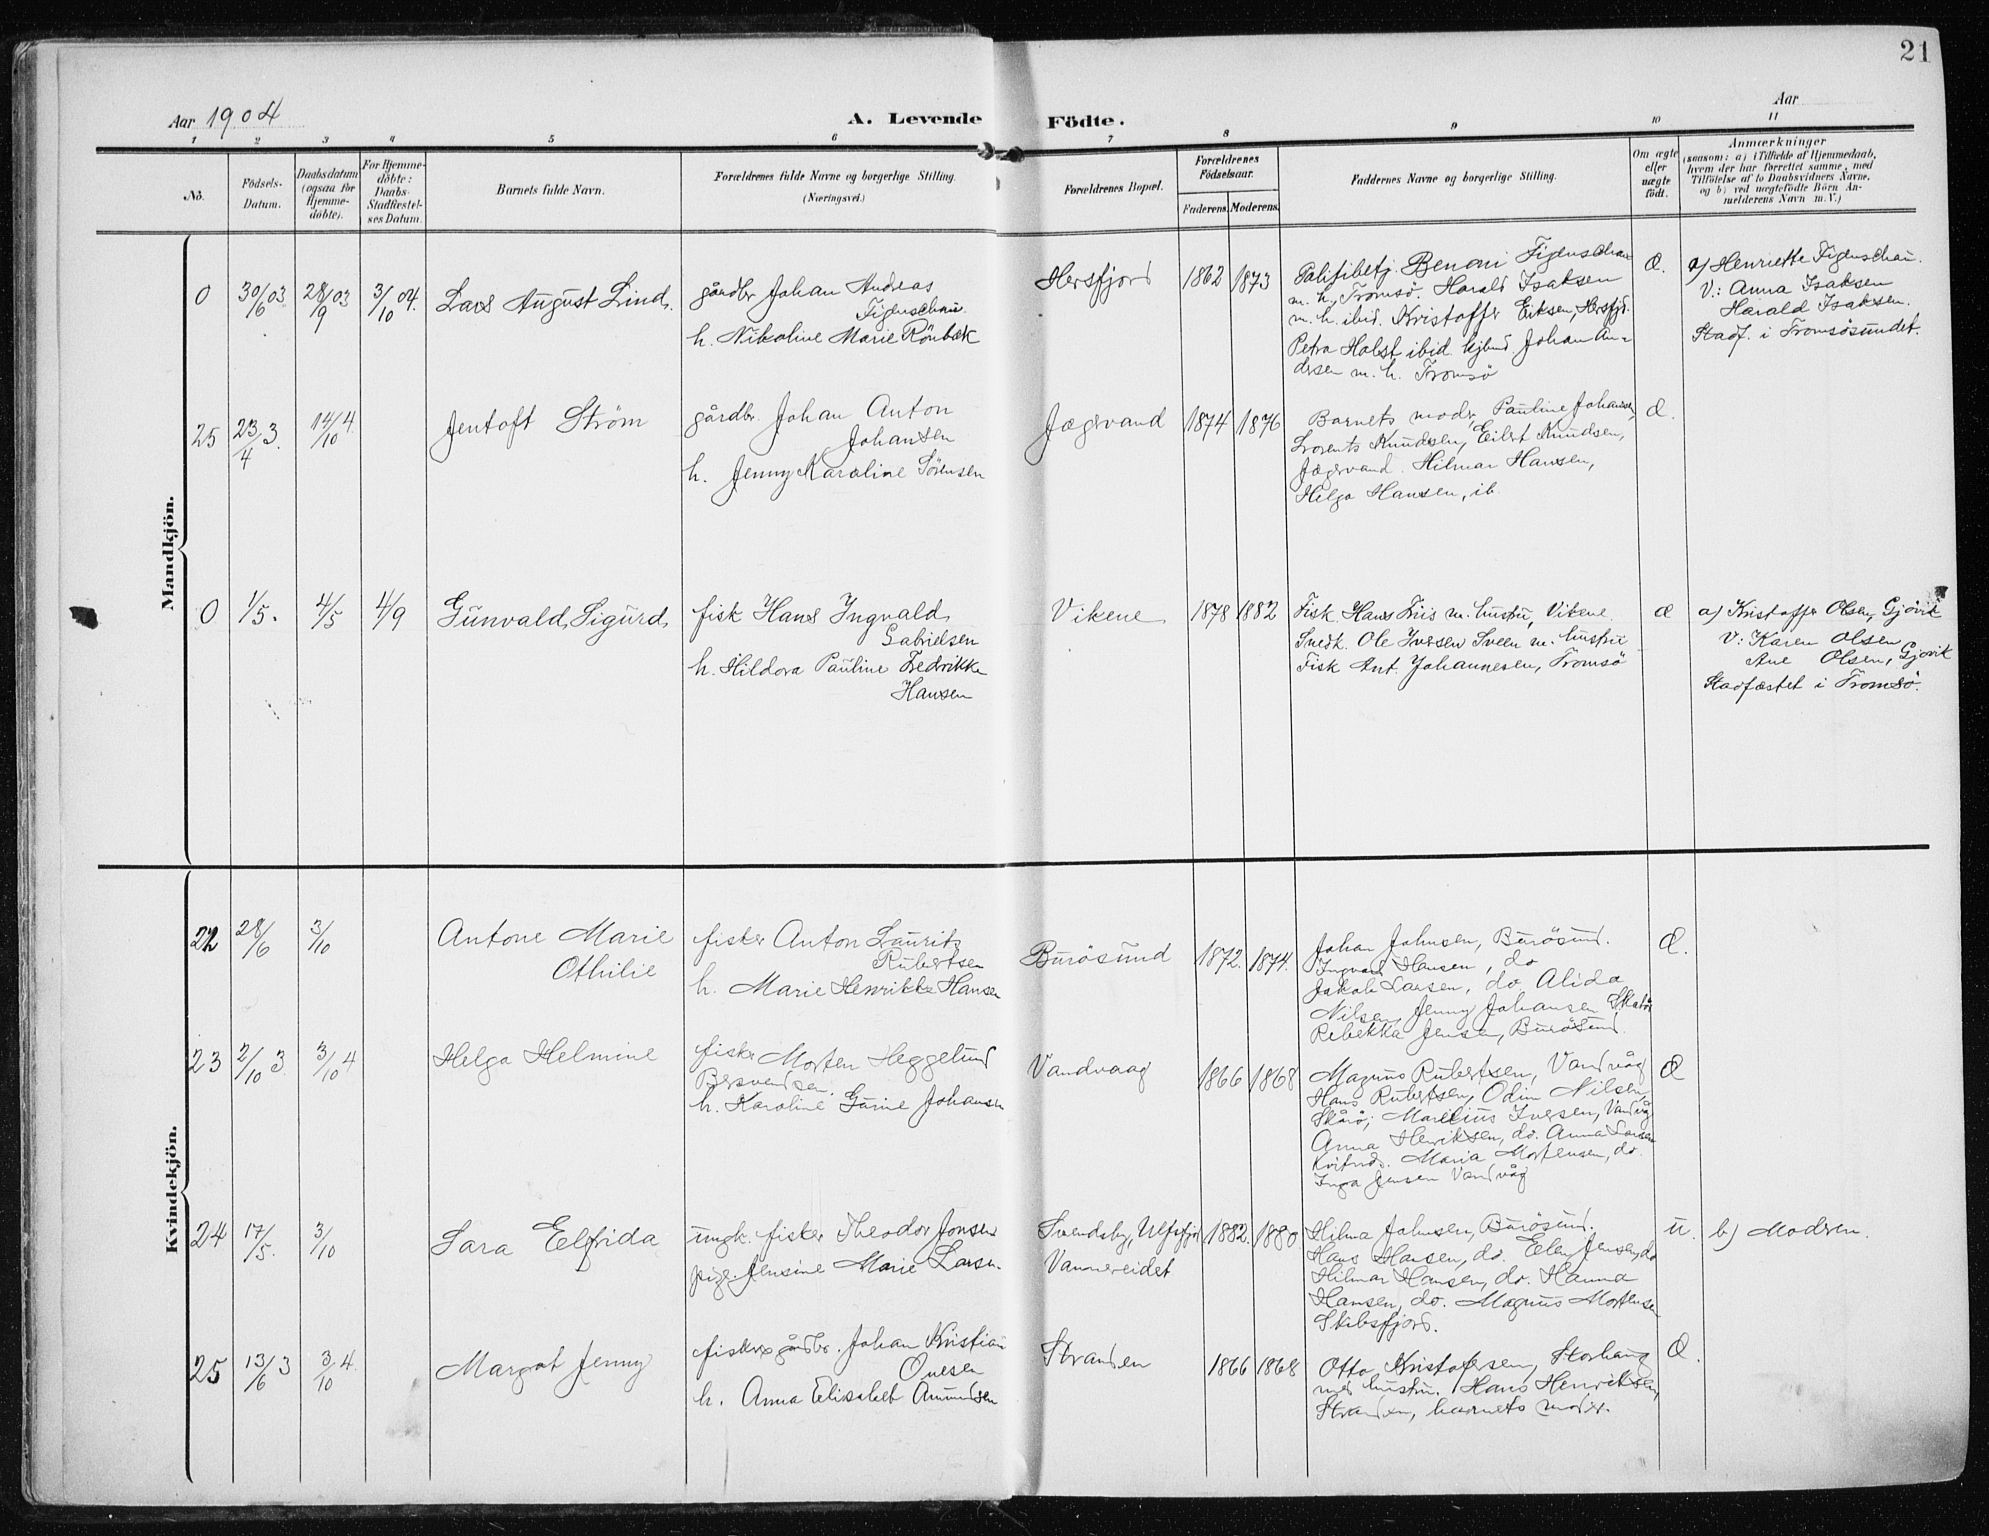 21
Aar 1904 A. Levende Födte. Aar
1 2 3 4 5 6 7 8 9 10 11
No.
Födsels-
Datum.
Daabsdatum
(ogsaa for
Hjemme-
döbte).
For Hjemme-
döbte:
Daabs-
Stadfæstel-
ses Datum.
Barnets fulde Navn.
Forældrenes fulde Navne og borgerlige Stilling.
(Næringsvei.)
Forældrenes Bopæl.
Forældrenes
Födselsaar.
Faderens. Moderens.
Faddernes Navne og borgerlige Stilling.
Om ægte
eller
uægte
födt.
Anmærkninger
(saasom: a) i Tilfælde af Hjemmedaab,
hvem der har forrettet samme, med
Tilföielse af to Daabsvidners Navne,
og b) ved uægtefödte Börn An-
melderens Navn m. V.)
Mandkjön.
0 30/6 03 28/9 03 3/10 04. Lars August Lind
gårdbr Johan Andreas
Figenschau
h. Nikoline Marie Rönbæk
Hersfjord 1862 1873
Benoni Figenschau
m. h. Tromsö. Harald Isaksen
m. h. ibid. Kristoffer Eiksen, Hersfjd.
Petra Holst ibid. Johan An-
dersen m. h. Tromsö
Æ.
a) Henriette Figenschau.
V: Anna Isaksen
Harald Isaksen.
Stadf. i Tromsösundet.
25 23/4 3. 14/10 4. Jentoft Ström
gårdbr. Johan Anton
Johansen
h. Jenny Karoline Sörensen
Jægervand 1874 1876
Barnets moder, Pauline Johansen,
Lorents Knudsen, Eilert Knudsen,
Jægervand. Hilmar Hansen,
Helga Hansen, ib.
Æ.
0 1/5. 4/5 4/9 Gunvald Sigurd
fisk Hans Ingvald
Gabrielsen
h. Hildora Pauline Fredrikke
Hansen
Vikene 1878 1882
Fisk. Hans Friis m. hustru, Vikene
Snedk. Ole Iversen Sveen m. hustru
Fisk Ant. Johannesen, Tromsö
æ
a) Kristoffer Olsen, Gjövik
V: Karen Olsen
Ane Olsen, Gjövik
Stadfæstet i Tromsö.
Kvindekjön.
22 28/6 3/10 Antone Marie
Othilie
fisker Anton Laurits
Rubertsen
h. Marie Henrikke Hansen
Burösund 1872. 1874.
Johan Johnsen, Burösund.
Ingvald Hansen, do
Jakob Larsen, do Alida
Nilsen, Jenny Johansen
Rebekka Jensen, Burösund.
Æ.
23 2/10 3. 3/10 4 Helga Helmine
fisker Morten Heggelund
Bersvendsen
h. Karoline Gurine Johansen
Vandvaag 1866 1868
Magnus Rubertsen, Vandvåg
Hans Rubertsen, Odin Nilsen,
Skårö; Marelius Iversen, Vandvåg
Anna Henriksen, do. Anna Larsen
Maria Mortensen, do.
Inga Jensen Vandvåg
Æ
24 17/5. 3/10 Sara Elfrida
ungk. fisker Theodor Jonsen
pige Jensine Marie Larsen.
Svendsby, Ulfsfjord
Vannereidet
1882. 1880.
Hilma Johnsen, Burösund.
Hans Hansen, do. Elen Jensen, do
Hilmar Hansen, do. Hanna
Hansen, do. Magnus Mortensen
Skibsfjord.
u. b) Modren.
25 13/6 3 3/10 4. Margot Jenny
fisker gårdbr. Johan Kristian
Ovesen
h. Anna Elisabet Amundsen
Stranden 1866 1868
Otto Kristofersen, Storhaug
med hustru. Hans Henriksen,
Stranden, barnets moder.
Æ.